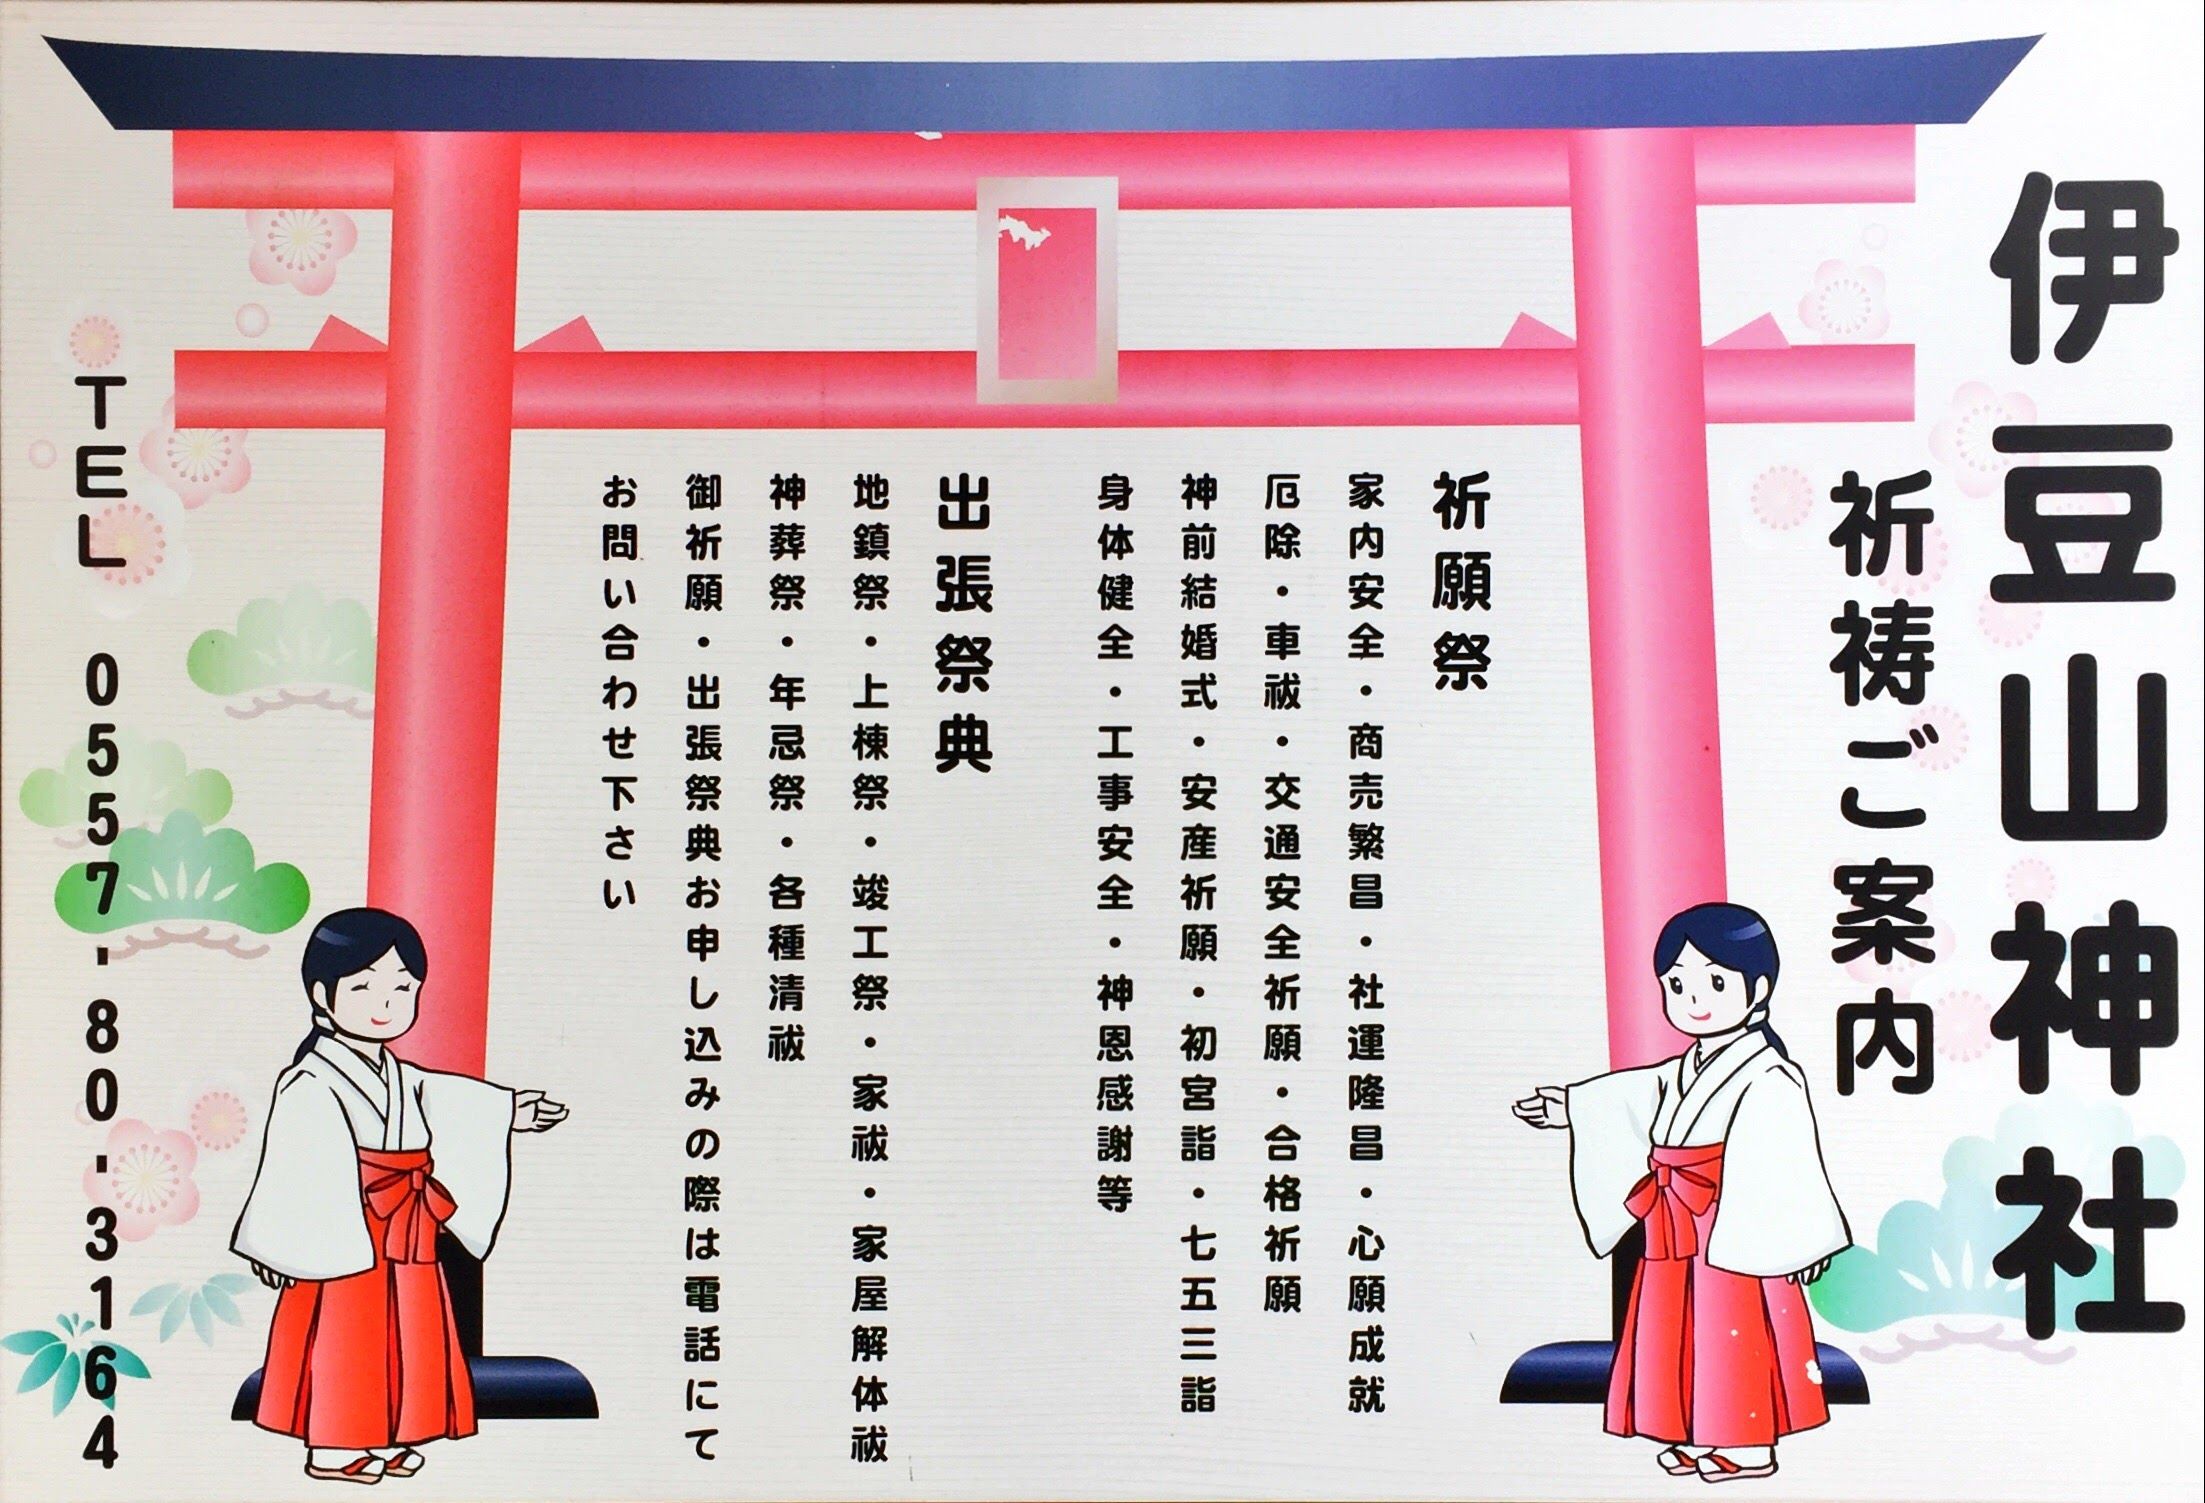 伊豆山神社
祈祷ご案内
祈願祭
家内安全・商売繁昌・社運隆昌・心願成就
厄除・車祓・交通安全祈願・合格祈願
神前結婚式・安産祈願・初宮詣・七五三詣
身体健全・工事安全・神恩感謝等
出張祭典
地鎮祭・上棟祭・竣工祭・家祓・家屋解体祓
神葬祭・年忌祭・各種清祓
御祈願・出張祭典お申し込みの際は電話にて
お問い合わせ下さい
TEL 0557-80-3164